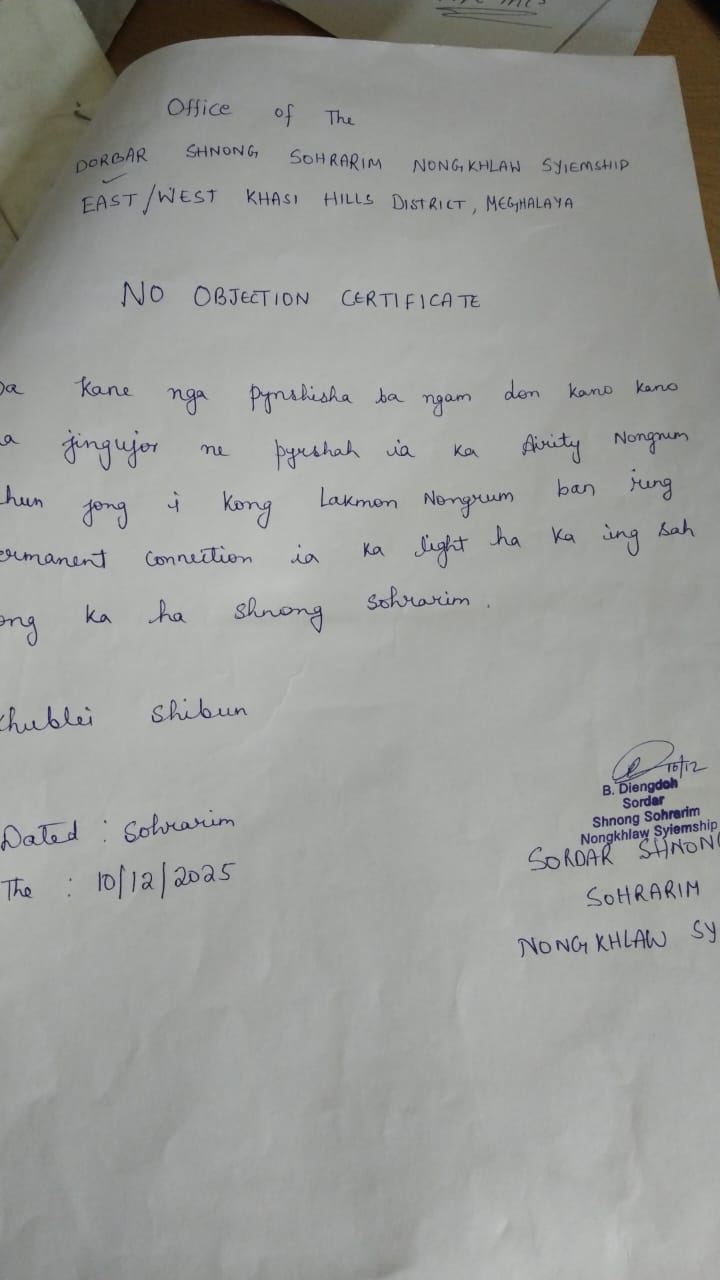 Office of The
DORBAR SHNONG SOHRARIM NONGKHLAW SYIEMSHIP
EAST/WEST KHASI HILLS DISTRICT, MEGHALAYA
NO OBJECTION CERTIFICATE
Da kane nga pynshisha ba ngam don kano kano
a jingujor ne pyrshah ia ka Airity Nongrum
hun jong i Kong Lakmon Nongrum ban rung
ermanent connection ia ka light ha ka ing sah
ong ka ha shnong Sohrarim.
Khublei shibun
10/12
B. Diengdoh
Sordar
Shnong Sohrarim
Nongkhlaw Syiemship
Dated : Sohrarim
The : 10/12/2025
SORDAR SHNONG
SOHRARIM
NONGKHLAW SY